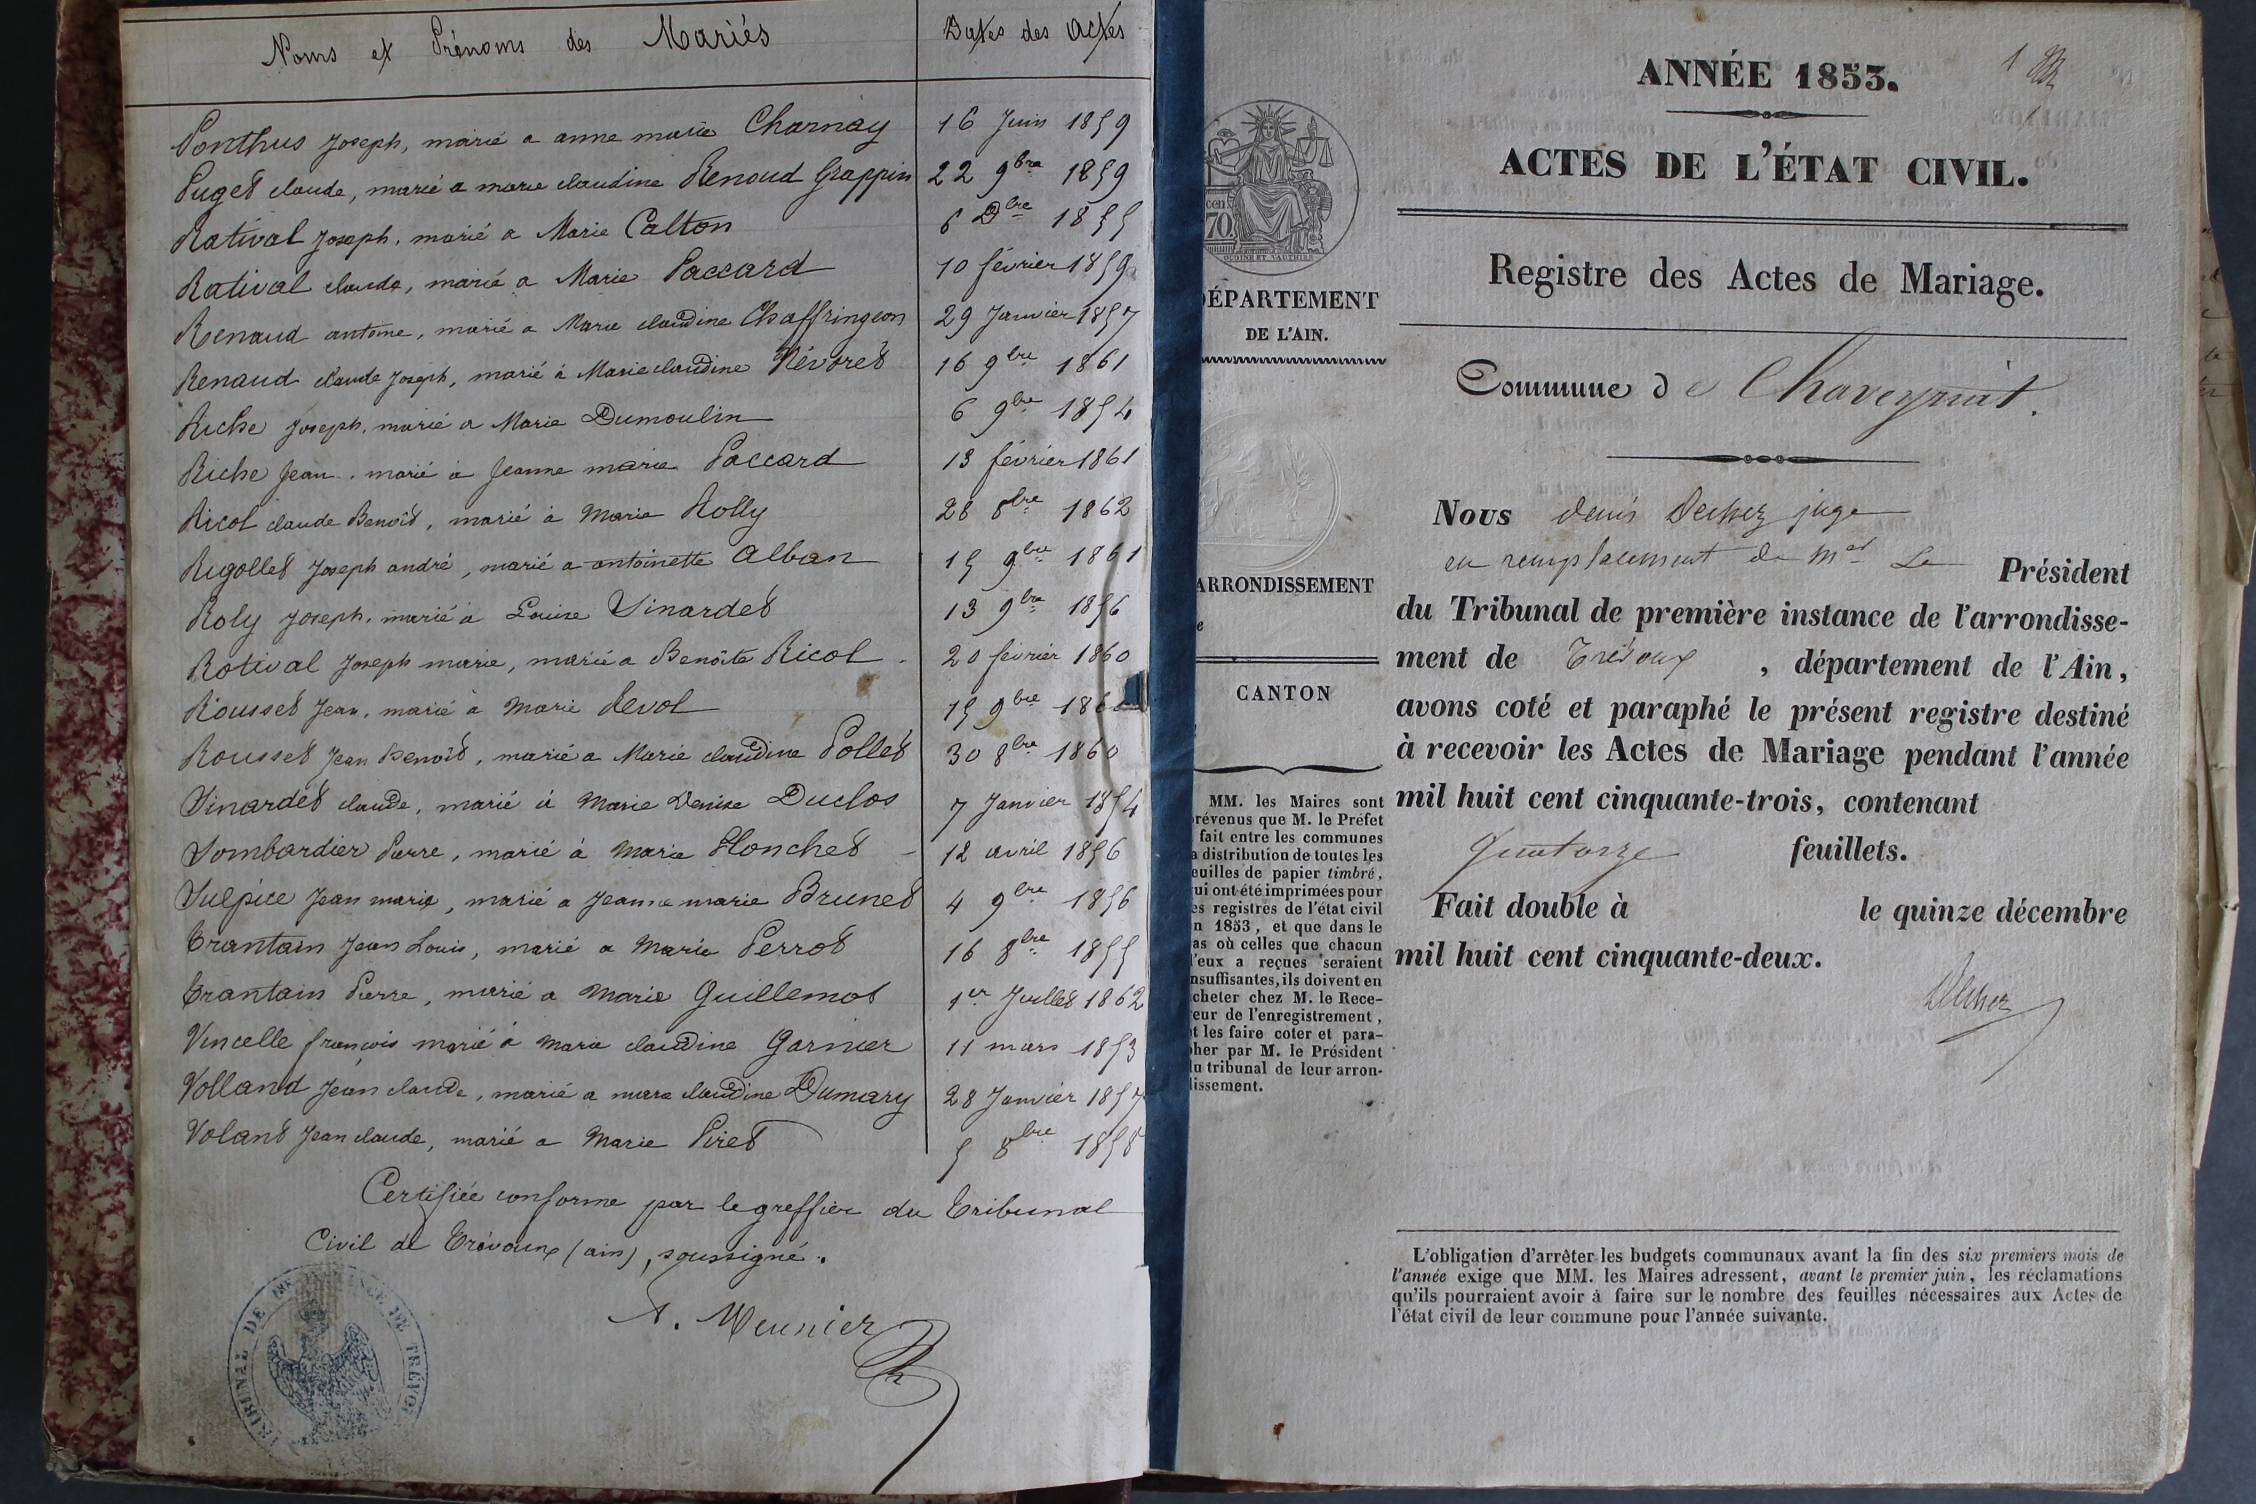 Noms et Prénoms des Mariés
Dates des Actes
Ponthus Joseph, marié a anne marie Charnay 16 Juin 1859
Puget claude, marié a marie claudine Renoud Grappin 22 9bre 1859
Ratival Joseph, marié a Marie Calton 6 Dbre 1855
Ratival claude, marié a Marie Paccard 10 février 1859
Renaud antoine, marié a Marie claudine Chaffringeon 29 Janvier 1857
Renaud claude Joseph, marié à Marie claudine Névoret 16 9bre 1861
Riche Joseph, marié a Marie Dumoulin 6 9bre 1854
Riche Jean, marié à Jeanne marie Paccard 13 février 1861
Ricol claude Benoit, marié à Marie Rolly 28 8bre 1862
Rigollet Joseph andré, marié a antoinette Alban 15 9bre 1861
Roly Joseph, marié a Louise Sinardet 13 9bre 1856
Rotival Joseph marie, marié a Benoite Ricol 20 février 1860
Rousset Jean, marié à Marie Revol 15 9bre
Rousset Jean Benoit, marié a Marie claudine Pollet 30 8bre 1860
Sinardet claude, marié à Marie Denise Duclos 7 Janvier 1854
Sombardier Pierre, marié à Marie Blonchet 12 avril 1856
Sulpice Jean marie, marié a Jeanne marie Brunet 4 9bre 1856
Trantain Jean Louis, marié a Marie Perrot 16 8bre 1855
Trantain Pierre, marié a Marie Guillemot 1er Juillet 1862
Vincelle françois marié à Marie claudine Garnier 11 mars 1853
Volland Jean claude, marié a marie claudine Dumary 28 Janvier 1857
Volant Jean claude, marié a Marie Piret 5 8bre 1858
Certifiée conforme par le greffier du Tribunal
Civil de Trévoux (ain), soussigné.
A. Meunier
TRIBUNAL DE INSTANCE DE TRÉVOUX
cen
70
OUDINÉ ET VAUTHIER
DÉPARTEMENT
DE L'AIN.
ARRONDISSEMENT
e
CANTON
MM. les Maires sont
révenus que M. le Préfet
fait entre les communes
a distribution de toutes les
euilles de papier timbré,
ui ont été imprimées pour
es registres de l'état civil
n 1853, et que dans le
as où celles que chacun
l'eux a reçues seraient
nsuffisantes, ils doivent en
cheter chez M. le Rece-
eur de l'enregistrement,
t les faire coter et para-
pher par M. le Président
du tribunal de leur arron-
lissement.
1
ANNÉE 1853.
ACTES DE L'ÉTAT CIVIL.
Registre des Actes de Mariage.
Commune de Chaveyriat.
Nous denis Dechez juge
en remplacement de Mr Le Président
du Tribunal de première instance de l'arrondisse-
ment de Trévoux, département de l'Ain,
avons coté et paraphé le présent registre destiné
à recevoir les Actes de Mariage pendant l'année
mil huit cent cinquante-trois, contenant
quatorze feuillets.
Fait double à le quinze décembre
mil huit cent cinquante-deux.
Dechez
L'obligation d'arrêter les budgets communaux avant la fin des six premiers mois de
l'année exige que MM. les Maires adressent, avant le premier juin, les réclamations
qu'ils pourraient avoir à faire sur le nombre des feuilles nécessaires aux Actes de
l'état civil de leur commune pour l'année suivante.